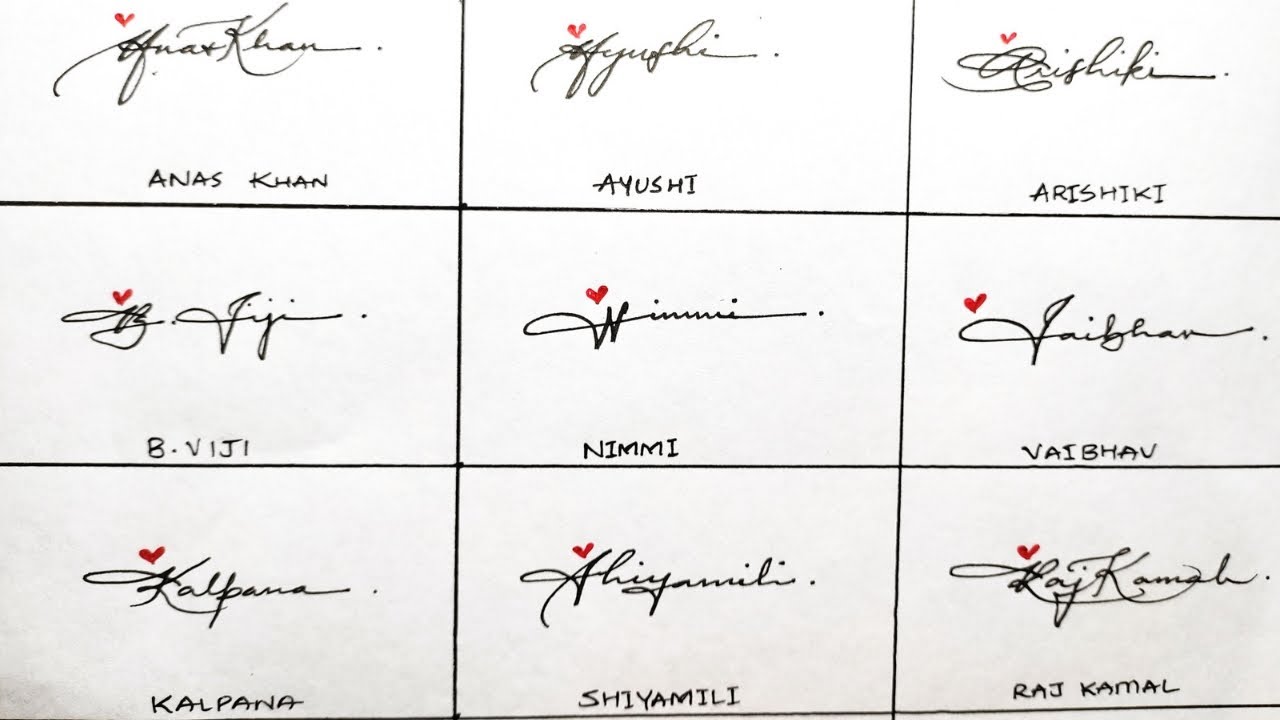 Anas Khan.
Ayushi.
Arishiki.
ANAS KHAN
AYUSHI
ARISHIKI
B. Viji.
Nimmi.
Vaibhav.
B. VIJI
NIMMI
VAIBHAV
Kalpana.
Shiyamili.
Raj Kamal.
KALPANA
SHIYAMILI
RAJ KAMAL